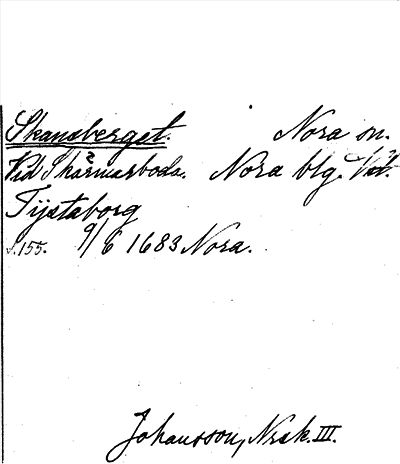 Skansberget. Nora sn.
Vid Skärmarboda. Nora blg. Vät.
Tystaborg
s.155. 9/6 1683 Nora.
Johansson, Nrsk. III.